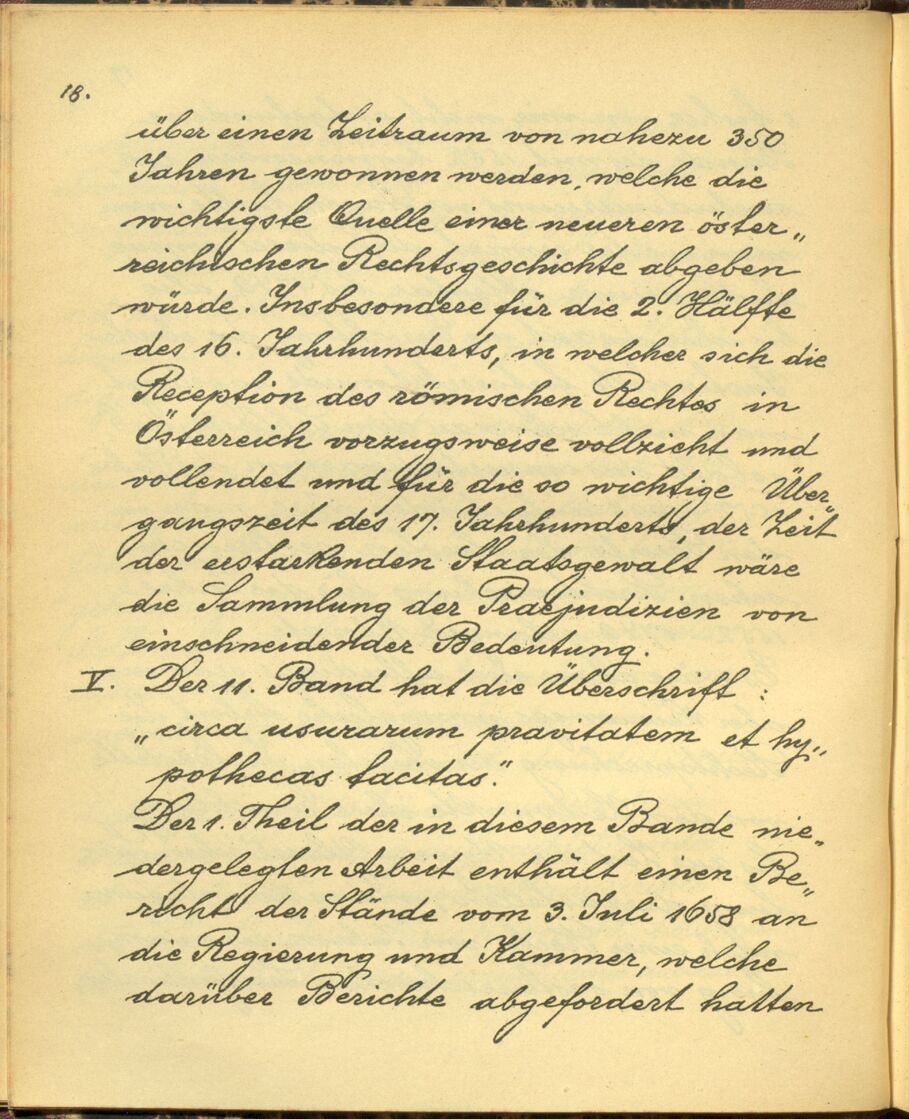 18.
über einen Zeitraum von nahezu 350
Jahren gewonnen werden, welche die
wichtigste Quelle einer neueren öster„
reichischen Rechtsgeschichte abgeben
würde. Insbesondere für die 2. Hälfte
des 16. Jahrhunderts, in welcher sich die
Reception des römischen Rechtes in
Österreich vorzugsweise vollzieht und
vollendet und für die so wichtige Über„
gangszeit des 17. Jahrhunderts, der Zeit
der erstarkenden Staatsgewalt wäre
die Sammlung der Praejudizien von
einschneidender Bedeutung.
V. Der 11. Band hat die Überschrift :
„circa usurarum pravitatem et hy„
pothecas tacitas."
Der 1. Theil der in diesem Bande nie„
dergelegten Arbeit enthält einen Be„
richt der Stände vom 3. Juli 1658 an
die Regierung und Kammer, welche
darüber Berichte abgefordert hatten